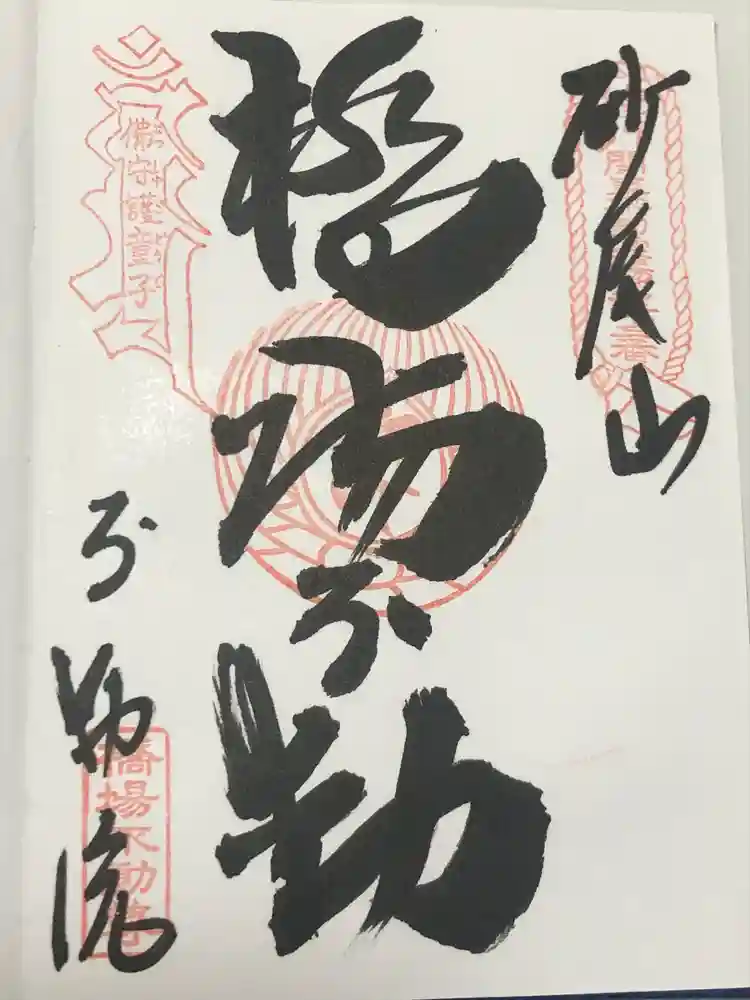 砂尾山
橋場不動
僧守護童子
不動院
橋場不動尊